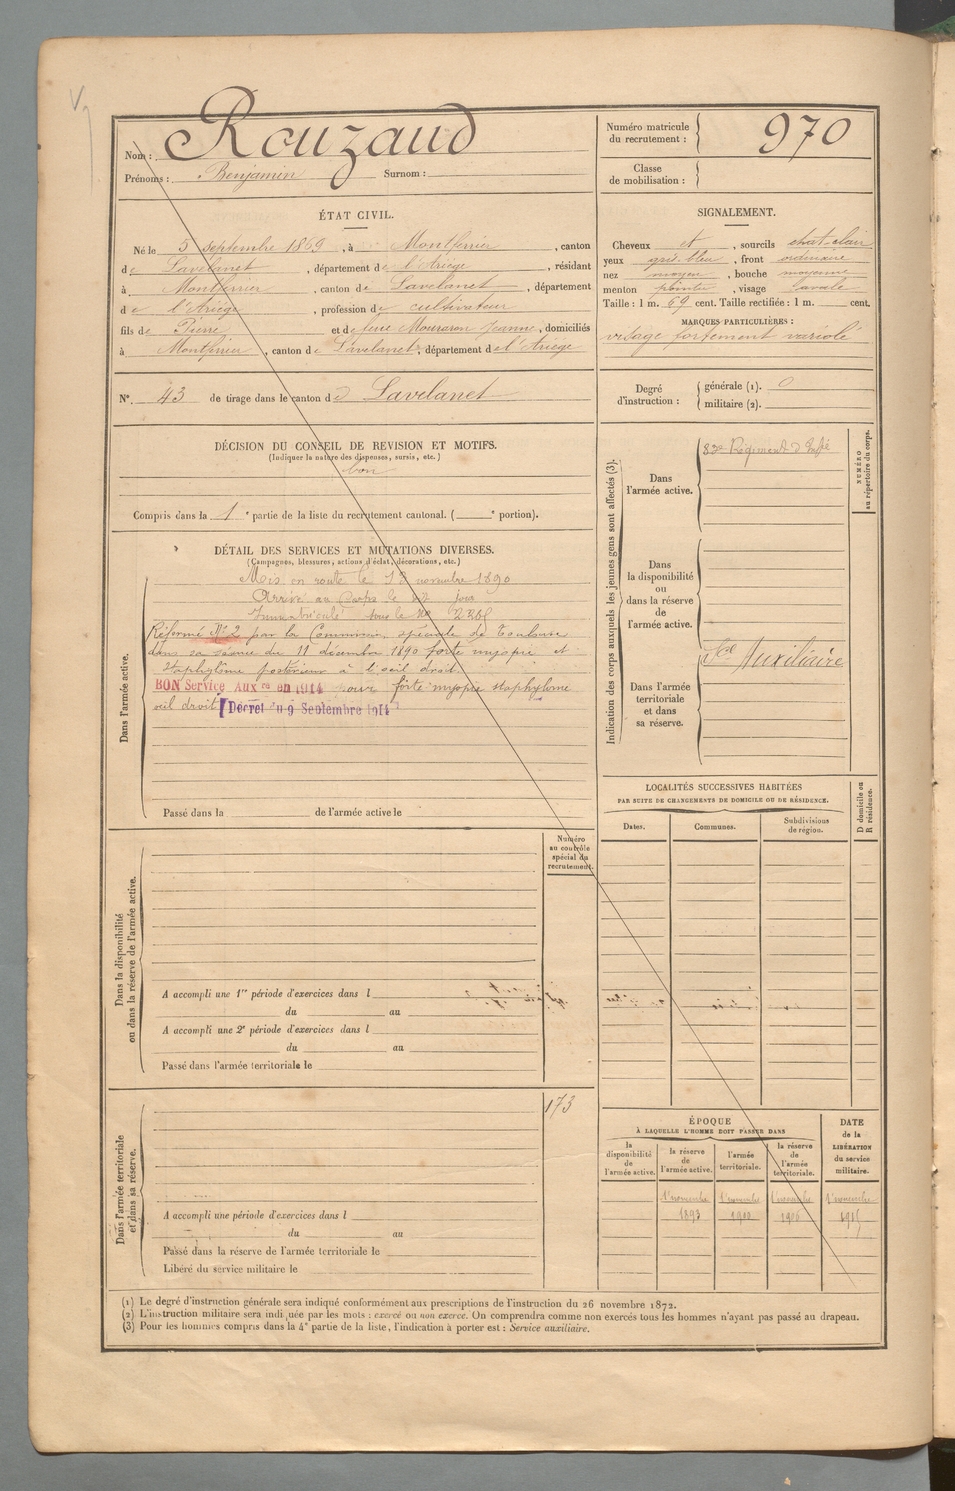 Nom : Rouzaud
Prénoms : Benjamin Surnom :
Numéro matricule du recrutement : 970
Classe de mobilisation :
ÉTAT CIVIL.
Né le 5 septembre 1869, à Montferrier, canton
de Lavelanet, département de l'Ariège, résidant
à Montferrier, canton de Lavelanet, département
de l'Ariège, profession de cultivateur
fils de Pierre et de feue Jeanne, domiciliés
à Montferrier, canton de Lavelanet, département de l'Ariège
N°. 43 de tirage dans le canton de Lavelanet
SIGNALEMENT.
Cheveux et, sourcils chat. clair
yeux gris-bleu, front ordinaire
nez moyen, bouche moyenne
menton pointu, visage ovale
Taille : 1 m. 69 cent. Taille rectifiée : 1 m. cent.
MARQUES PARTICULIÈRES :
visage fortement variolé
Degré d'instruction :
générale (1). 0
militaire (2).
DÉCISION DU CONSEIL DE REVISION ET MOTIFS.
(Indiquer la nature des dispenses, sursis, etc.)
bon
Compris dans la 1e partie de la liste du recrutement cantonal. ( e portion).
DÉTAIL DES SERVICES ET MUTATIONS DIVERSES.
(Campagnes, blessures, actions d'éclat, décorations, etc.)
Dans l'armée active.
Mis en route le novembre 1890
Arrivé au Corps le dit jour
Immatriculé sous le No
Réformé No 2 par la Commission spéciale de Toulouse
dans sa séance du 11 décembre 1890 forte myopie et
staphylôme postérieur à l'oeil droit.
BON Service Auxre en 1914 pour forte myopie staphylome
oeil droit [Décret du 9 Septembre 1914]
Passé dans la de l'armée active le
Indication des corps auxquels les jeunes gens sont affectés (3).
NUMÉRO au répertoire du corps.
Dans l'armée active.
Régiment d'Infie
Dans la disponibilité ou dans la réserve de l'armée active.
Dans l'armée territoriale et dans sa réserve.
Sce Auxiliaire
LOCALITÉS SUCCESSIVES HABITÉES
PAR SUITE DE CHANGEMENTS DE DOMICILE OU DE RÉSIDENCE.
Dates. Communes. Subdivisions de région.
D domicile ou R résidence.
Numéro au contrôle spécial du recrutement.
Dans la disponibilité ou dans la réserve de l'armée active.
A accompli une 1re période d'exercices dans l
du au
A accompli une 2e période d'exercices dans l
du au
Passé dans l'armée territoriale le
173
Dans l'armée territoriale et dans sa réserve.
A accompli une période d'exercices dans l
du au
Passé dans la réserve de l'armée territoriale le
Libéré du service militaire le
ÉPOQUE
À LAQUELLE L'HOMME DOIT PASSER DANS
la disponibilité de l'armée active.
la réserve de l'armée active.
l'armée territoriale.
la réserve de l'armée territoriale.
DATE de la LIBÉRATION du service militaire.
1er novembre 1er novembre 1er novembre 1er novembre
1893 1900 1906 1915
(1) Le degré d'instruction générale sera indiqué conformément aux prescriptions de l'instruction du 26 novembre 1872.
(2) L'instruction militaire sera indiquée par les mots : exercé ou non exercé. On comprendra comme non exercés tous les hommes n'ayant pas passé au drapeau.
(3) Pour les hommes compris dans la 4e partie de la liste, l'indication à porter est : Service auxiliaire.